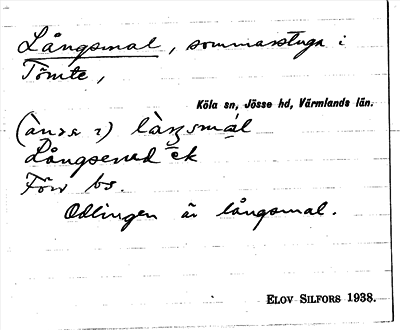 Långsmal, sommarstuga i
Tömte,
Köla sn, Jösse hd, Värmlands län.
långsmal
ek
Förr bs.
Odlingen är långsmal.
ELOV SILFORS 1938.